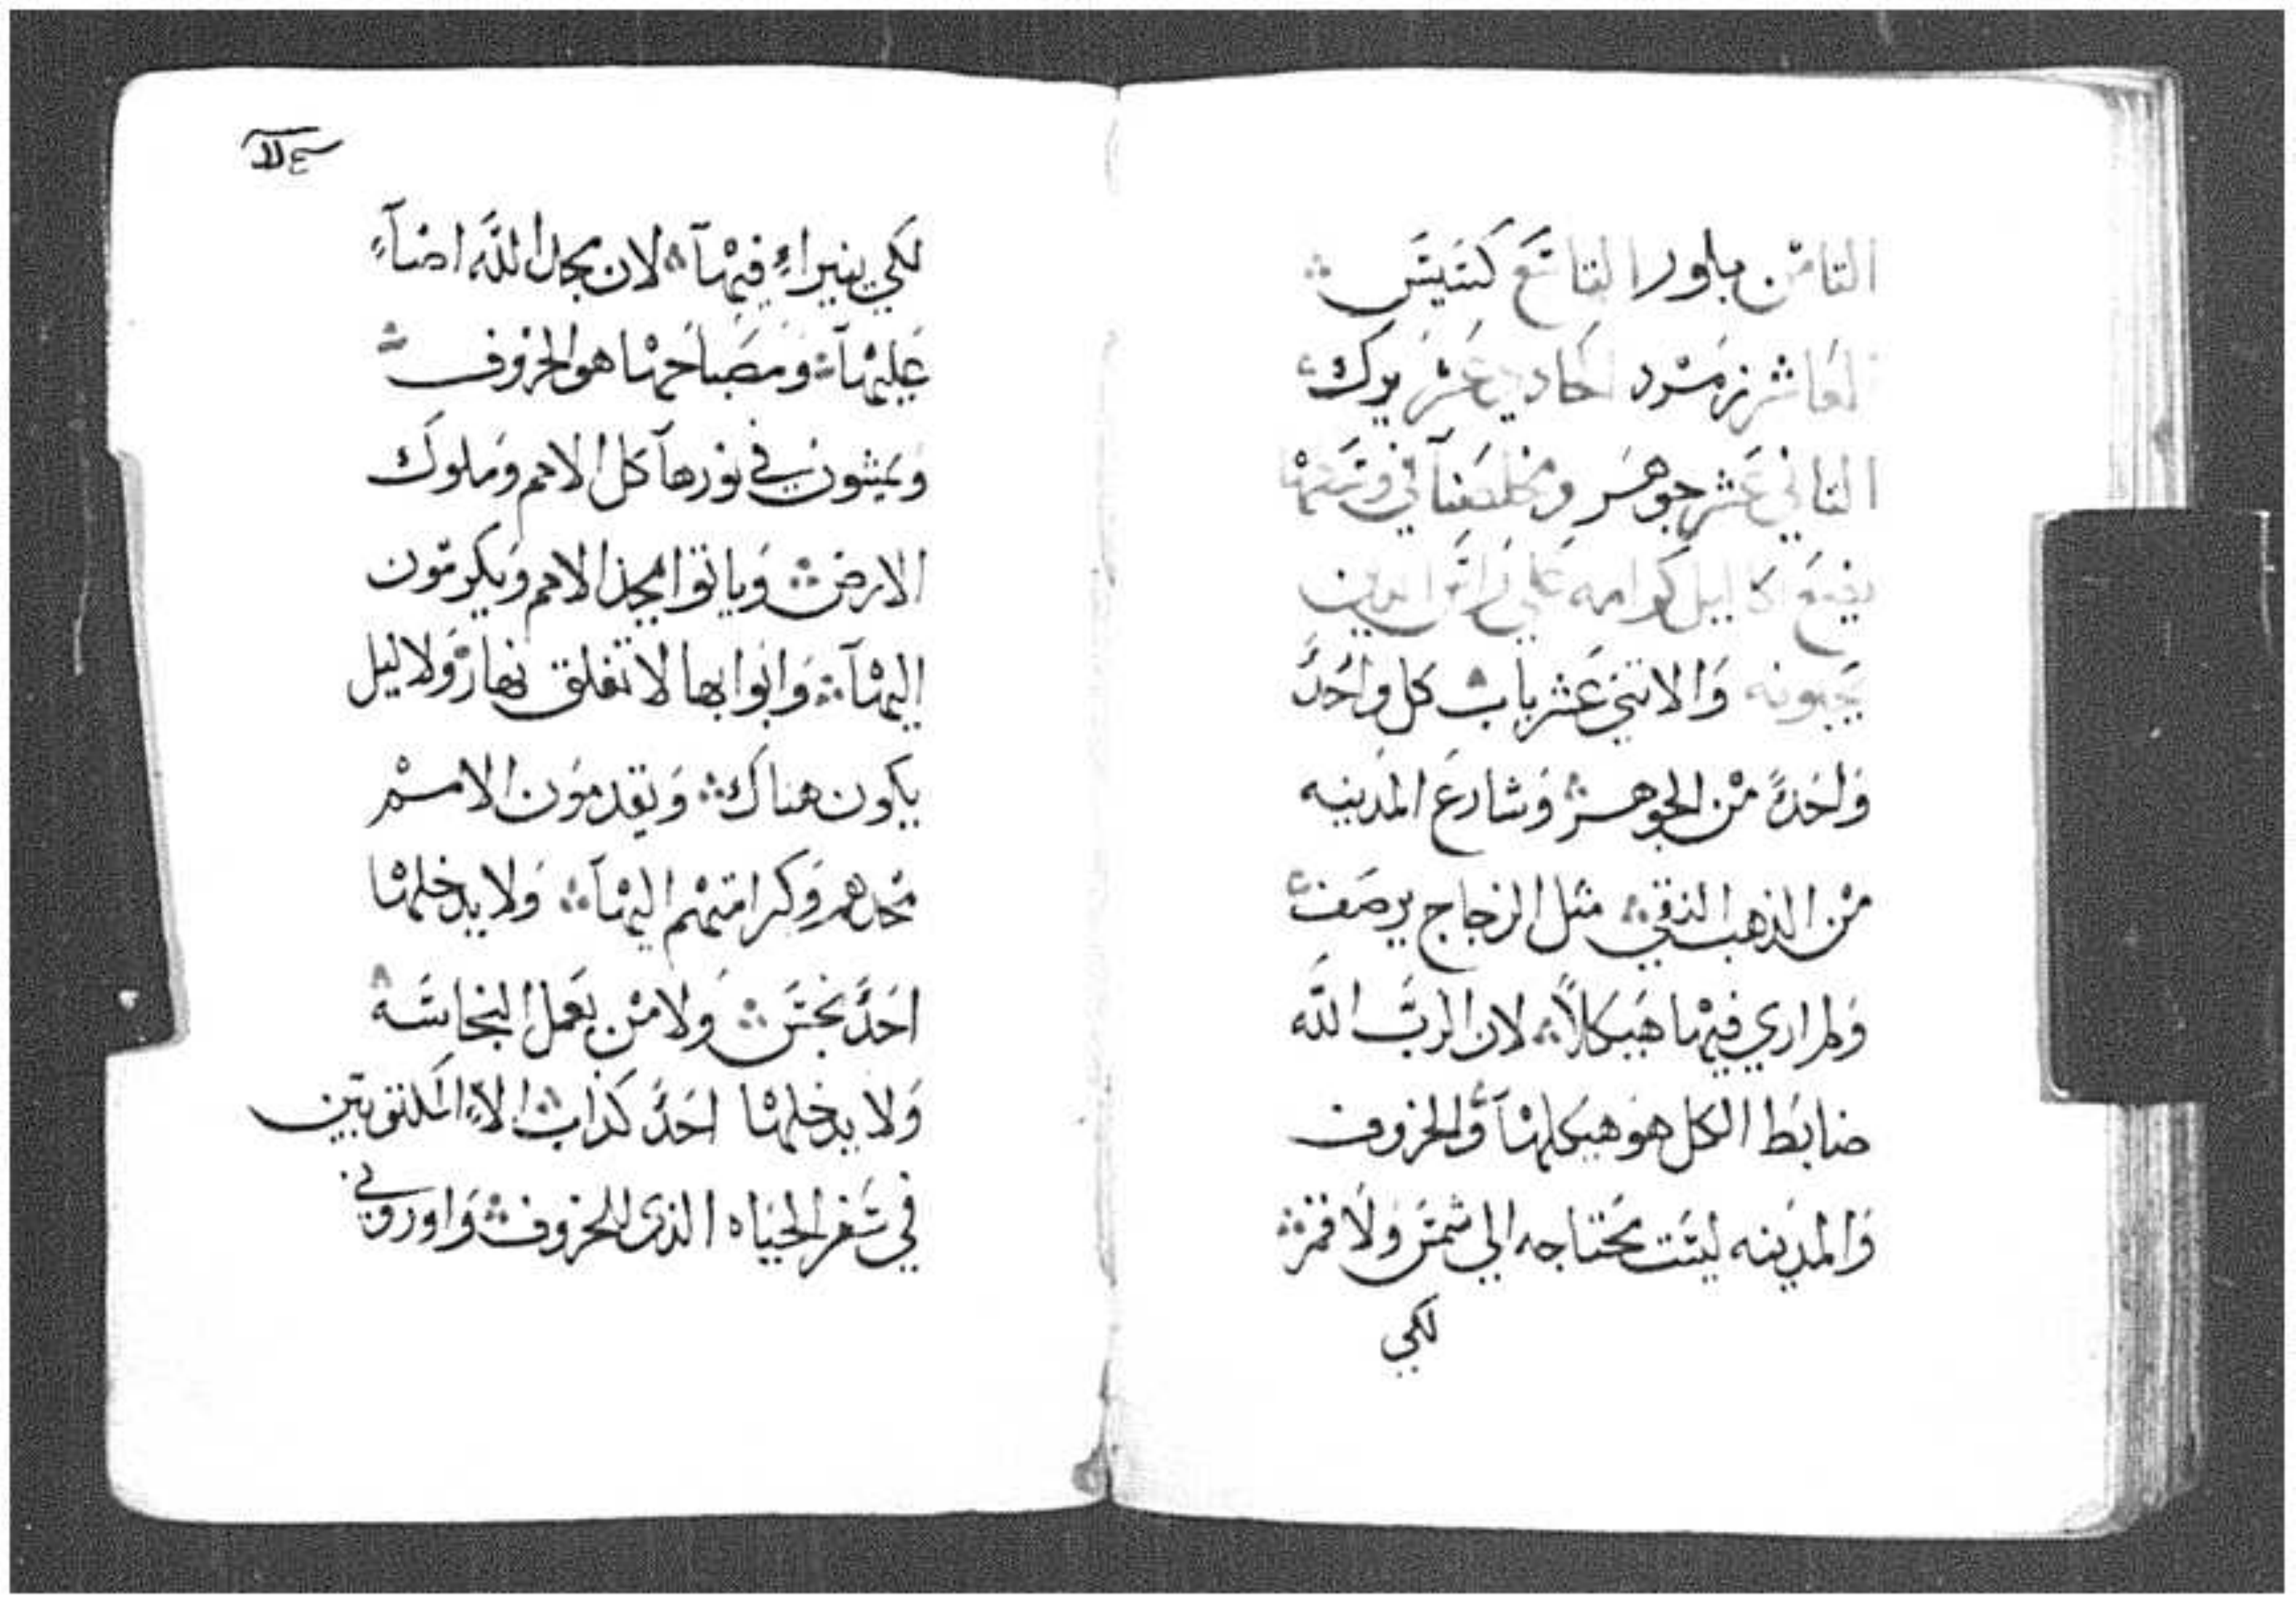 التامن بلور التاسع كنتيتس
العاشر زمرد الحادي عشر يرك
التاني عشر جوهر ومخلصنا في وسمها
يضع اكاليل كرامه علي راس الدين
يحبونه والاتني عشر باب كل واحدً
واحده من الجوهر وشارع المدينه
من الذهب النقي مثل الزجاج يرصف
ولم اري فيها هيكلاً لان الرب الله
ضابط الكل هو هيكلها والخروف
والمدينه ليست تحتاجه الي شمس ولا قمر
لكي
لكي ينيراءِ فيهآ لان مجال الله اضآءِ
عليهآ ومصباحها هو الخروف
ويمشون في نورهآ كل الامم وملوك
الارض وياتوا بمجد الامم ويكرمون
اليهآ وابوابها لا تغلق نهار ولا ليل
يكون هناك ويقدمون الامم
مجدهم وكرامتهم اليهآ ولا يدخلها
احدً نجس ولا من يعمل النجاسه
ولا يدخلها احدً كذاب الاء المكتوبين
في سفر الحياه الذي للخروف واوروني